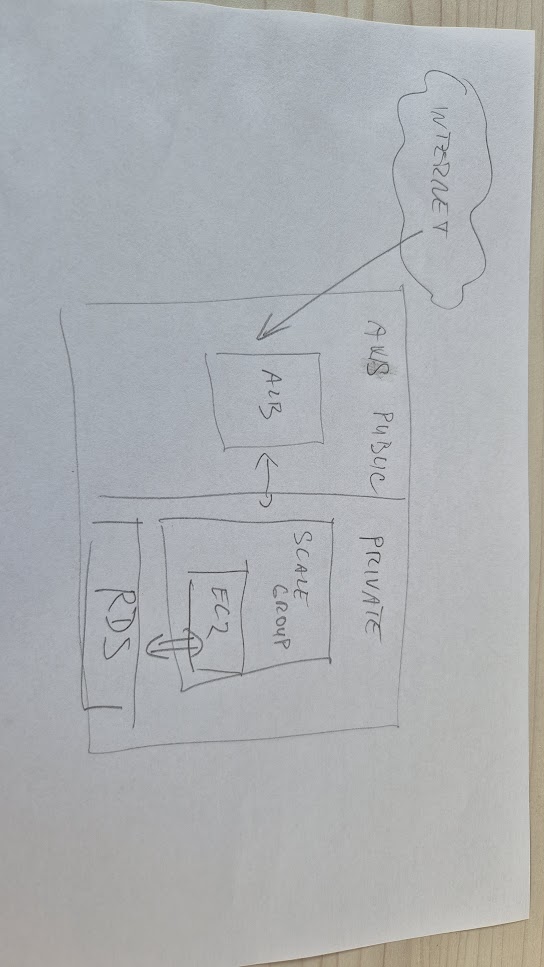 INTERNET
AWS PUBLIC
PRIVATE
ALB
SCALE
GROUP
EC2
RDS